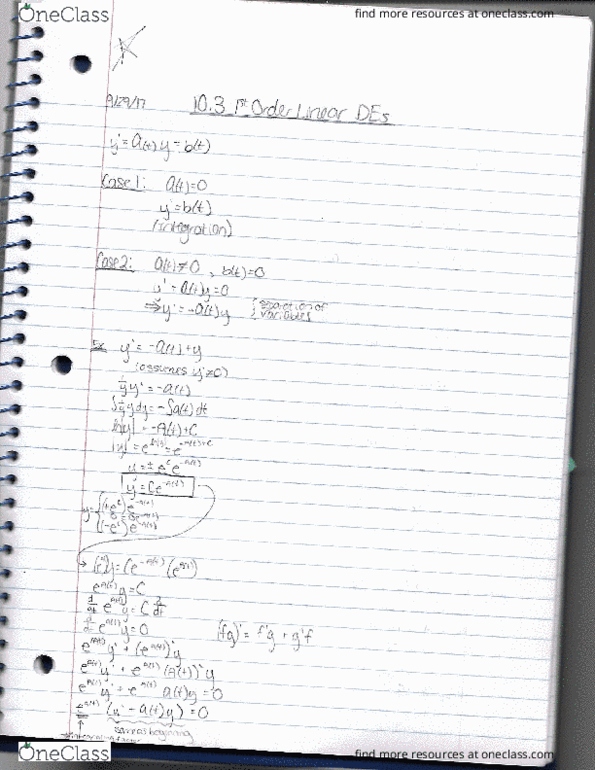 OneClass
find more resources at oneclass.com
9/29/17 10.3 1st Order Linear DEs
y' = a(t) y = b(t)
Case 1: a(t)=0
y' = b(t)
(integration)
Case 2: a(t) ≠ 0, b(t)=0
y' = a(t)y = 0
⇒ y' = -a(t)y
separation of variables
Ex y' = -a(t)+y
(assumes y≠0)
1/y y' = -a(t)
= -∫a(t)dt
ln|y| = -A(t)+C
y = ± e^c e^-A(t)
y = Ce^-A(t)
e^A(t) y = C
d/dt e^A(t) y = 0
(fg)' = f'g + g'f
e^A(t) y' + (e^A(t))'y
e^A(t) y' + e^A(t) (A(t))' y
e^A(t) y' + e^A(t) a(t)y = 0
e^A(t) (y' - a(t)y) = 0
same as beginning
*integrating factor
OneClass
find more resources at oneclass.com